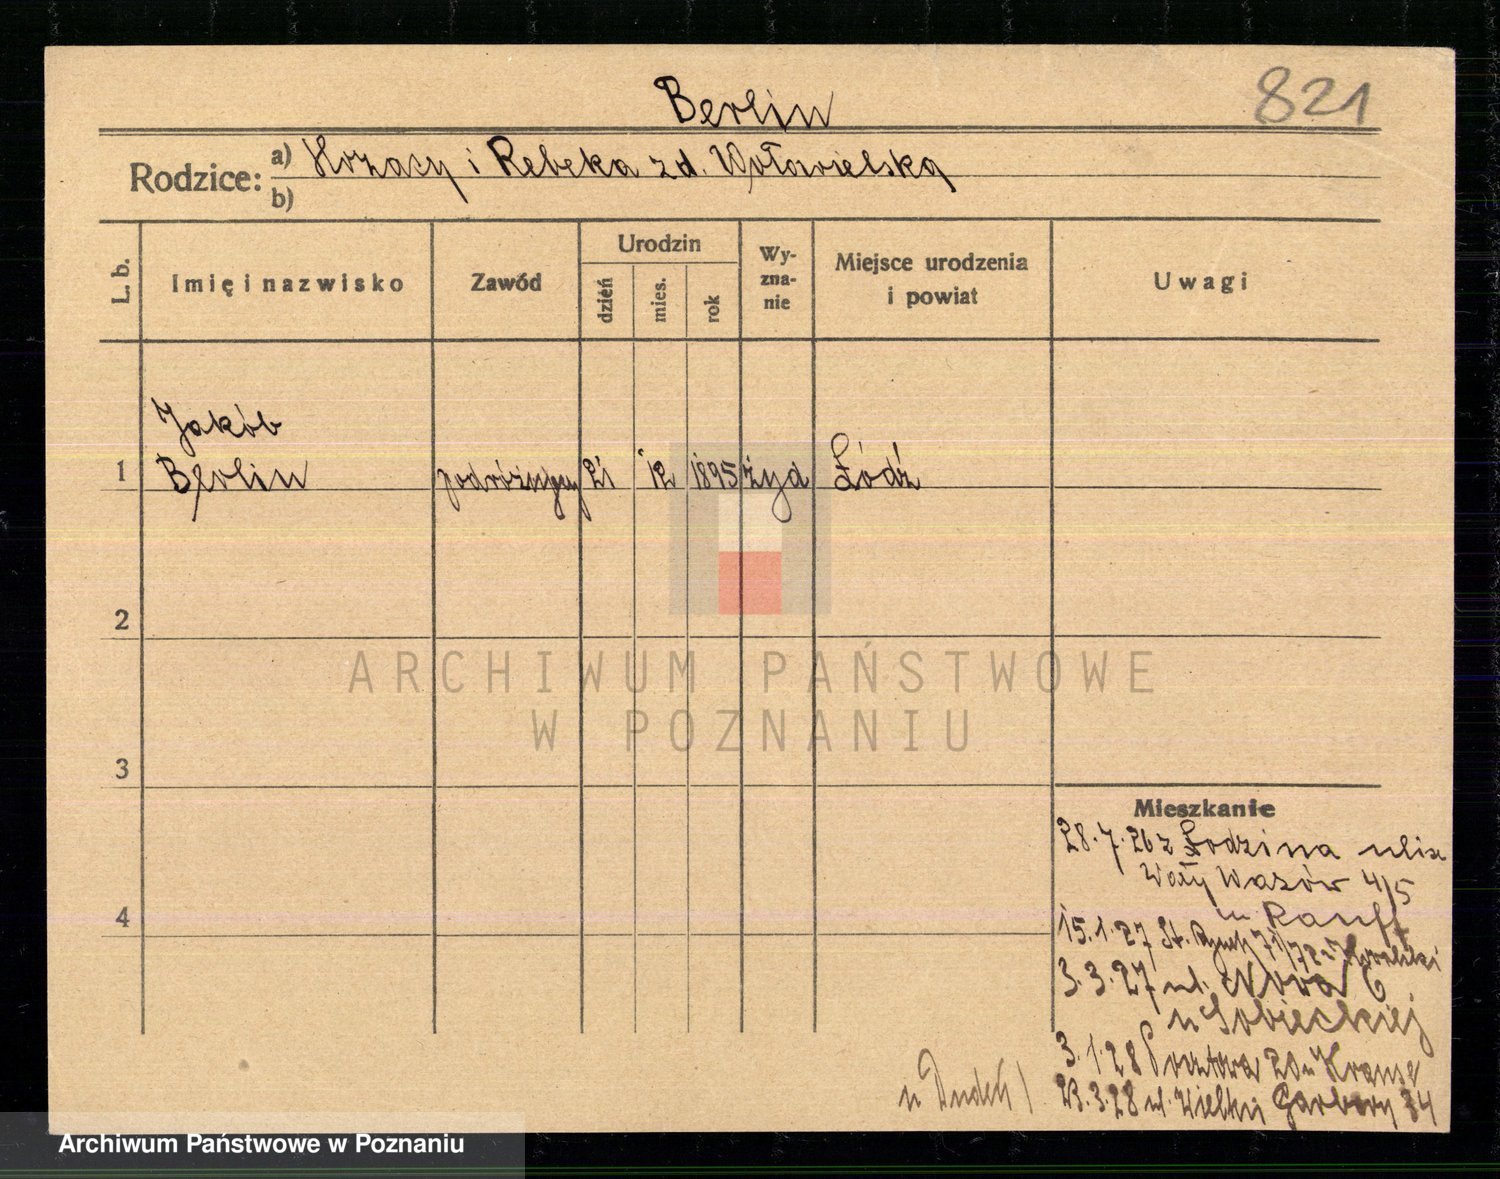 Berlin
821
Rodzice:
a) Horacy i Rebeka zd. Wołowielska
b)
L. b.
Imię i nazwisko
Zawód
Urodzin
dzień
mies.
rok
Wy-
zna-
nie
Miejsce urodzenia
i powiat
Uwagi
Jakób
1 Berlin podróżujący 21 12 1895 żyd Łódź
2
3
4
ARCHIWUM PAŃSTWOWE
W POZNANIU
Mieszkanie
28.7.26 z Łodzi na
Wały Wazów 4/5
u Rauff
15.1.27 St. Rynek 71/72 u
3.3.27 ul. Nowa 6
u Sobieckiej
3.1.28 Pocztowa 20 u Krause
23.3.28 ul. Wielkie Garbary 34
u
Archiwum Państwowe w Poznaniu